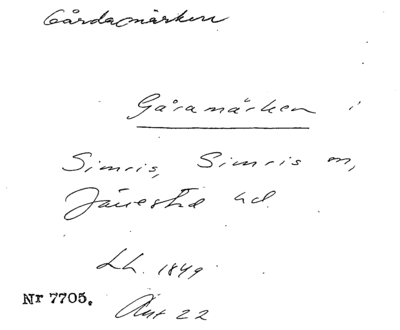 Gårdamärken
Gåramärken i
Simris, Simris sn,
Järrestad hd.
Lh. 1849
Nr 7705.
Ant 22